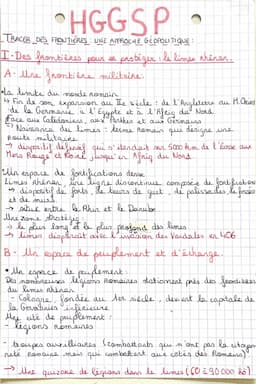 HGGSP
TRACER DES FRONTIÈRES : UNE APPROCHE GÉOPOLITIQUE :
I - Des frontières pour se protéger : le limes rhénan.
A - Une frontière militaire.
La limite du monde romain
↳ Fin de son expansion au IIe siècle : de l'Angleterre au M. Orient
de la Germanie, à l'Égypte et à l'Afriq du Nord.
Face aux Calédoniens, aux Parthes et aux Germains
↳ Naissance du limes : terme romain qui désigne une
route militaire.
→ dispositif défensif qui s'étendait sur 5000 km de l'Écosse aux
Mers Rouge et Noire jusqu'en Afriq du Nord.
Un espace de fortifications dense
Limes rhénan, une ligne discontinue composée de fortifications
→ dispositif de forts, de tours de guet, de palissades, de fossés
et de murs
→ situé entre le Rhin et le Danube.
Une zone stratégiq :
→ le plus long et le plus profond des limes
→ limes disparaît avec l'invasion des Vandales en 406
B - Un espace de peuplement et d'échange.
Un espace de peuplement :
Des nombreuses légions romaines stationnées près des frontières
du limes rhénan
- Cologne, fondée au 1er siècle, devient la capitale de
la Germanie inférieure
Une cité de peuplement :
- légions romaines
- troupes auxiliaires (combattants qui n'ont pas la citoyen
neté romaine mais qui combattent aux côtés des Romains)
→ Une quinzaine de légions dans le limes (60 à 90 000 h).